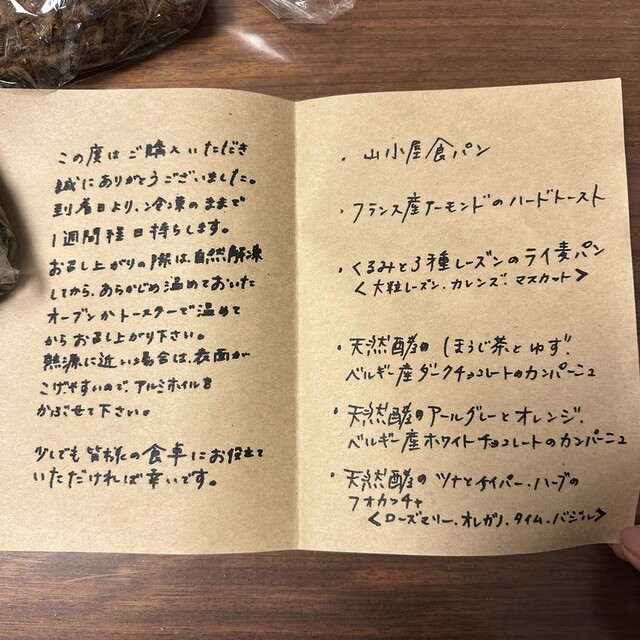 この度はご購入いただき
誠にありがとうございました。
到着日より、冷凍のままで
1週間程日持ちします。
お召し上がりの際は、自然解凍
してから、あらかじめ温めておいた
オーブンかトースターで温めて
からお召し上がり下さい。
熱源に近い場合は、表面が
こげやすいので、アルミホイルを
かぶせて下さい。
少しでも皆様の食卓にお役立て
いただければ幸いです。
・山小屋食パン
・フランス産アーモンドのハードトースト
・くるみと3種レーズンのライ麦パン
<大粒レーズン、カレンズ、マスカット>
・天然酵母の ほうじ茶とゆず、
ベルギー産ダークチョコレートのカンパーニュ
・天然酵母のアールグレーとオレンジ、
ベルギー産ホワイトチョコレートのカンパーニュ
・天然酵母の ツナとケイパー、ハーブの
フォカッチャ
<ローズマリー、オレガノ、タイム、バジル>